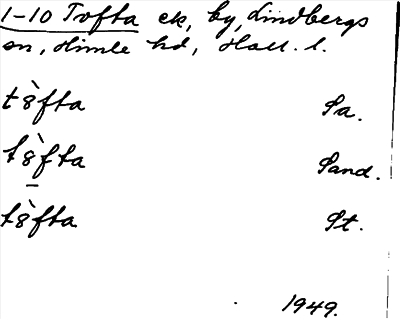 1-10 Tofta ek, by, Lindbergs
sn, Himle hd, Hall. l.
t8̀fta Sa.
t8̀fta Sand.
t8̀fta St.
1949.